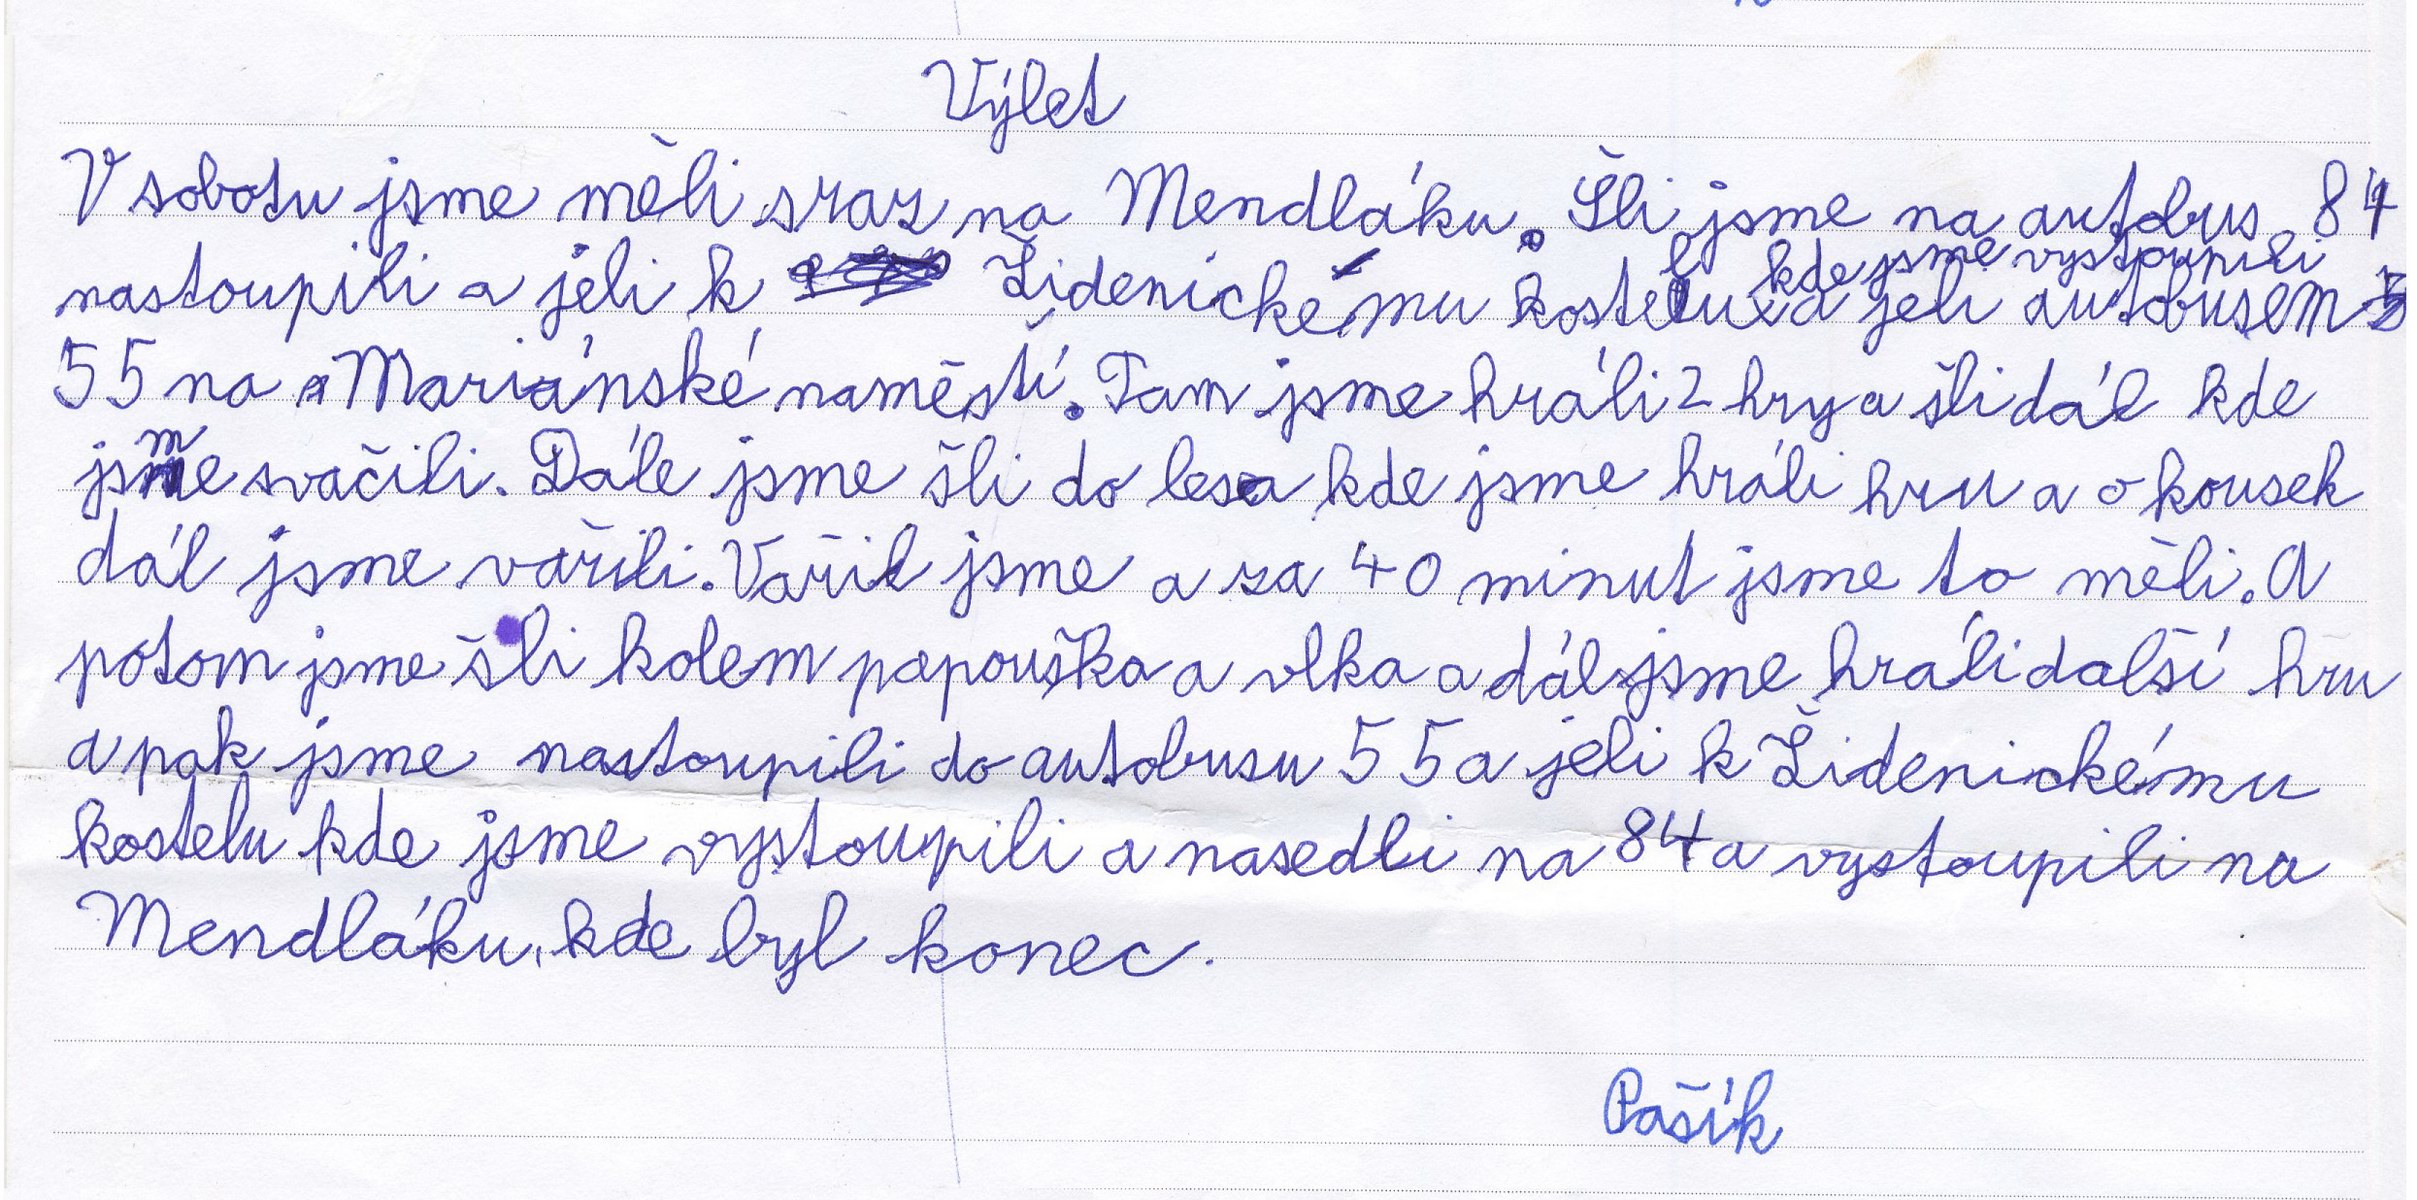 Výlet
V sobotu jsme měli sraz na Mendláku. Šli jsme na autobus 84
nastoupili a jeli k Židenickému kostelu kde jsme vystoupili a jeli autobusem
55 na Mariánské naměstí. Tam jsme hráli 2 hry a šli dál kde
jsme svačili. Dále jsme šli do lesa kde jsme hráli hru a o kousek
dál jsme vařili. Vařil jsme a za 40 minut jsme to měli. A
potom jsme šli kolem papouška a vlka a dál jsme hráli další hru
a pak jsme nastoupili do autobusu 55 a jeli k Židenickému
kostelu kde jsme vystoupili a nasedli na 84 a vystoupili na
Mendláku, kde byl konec.
Pašík